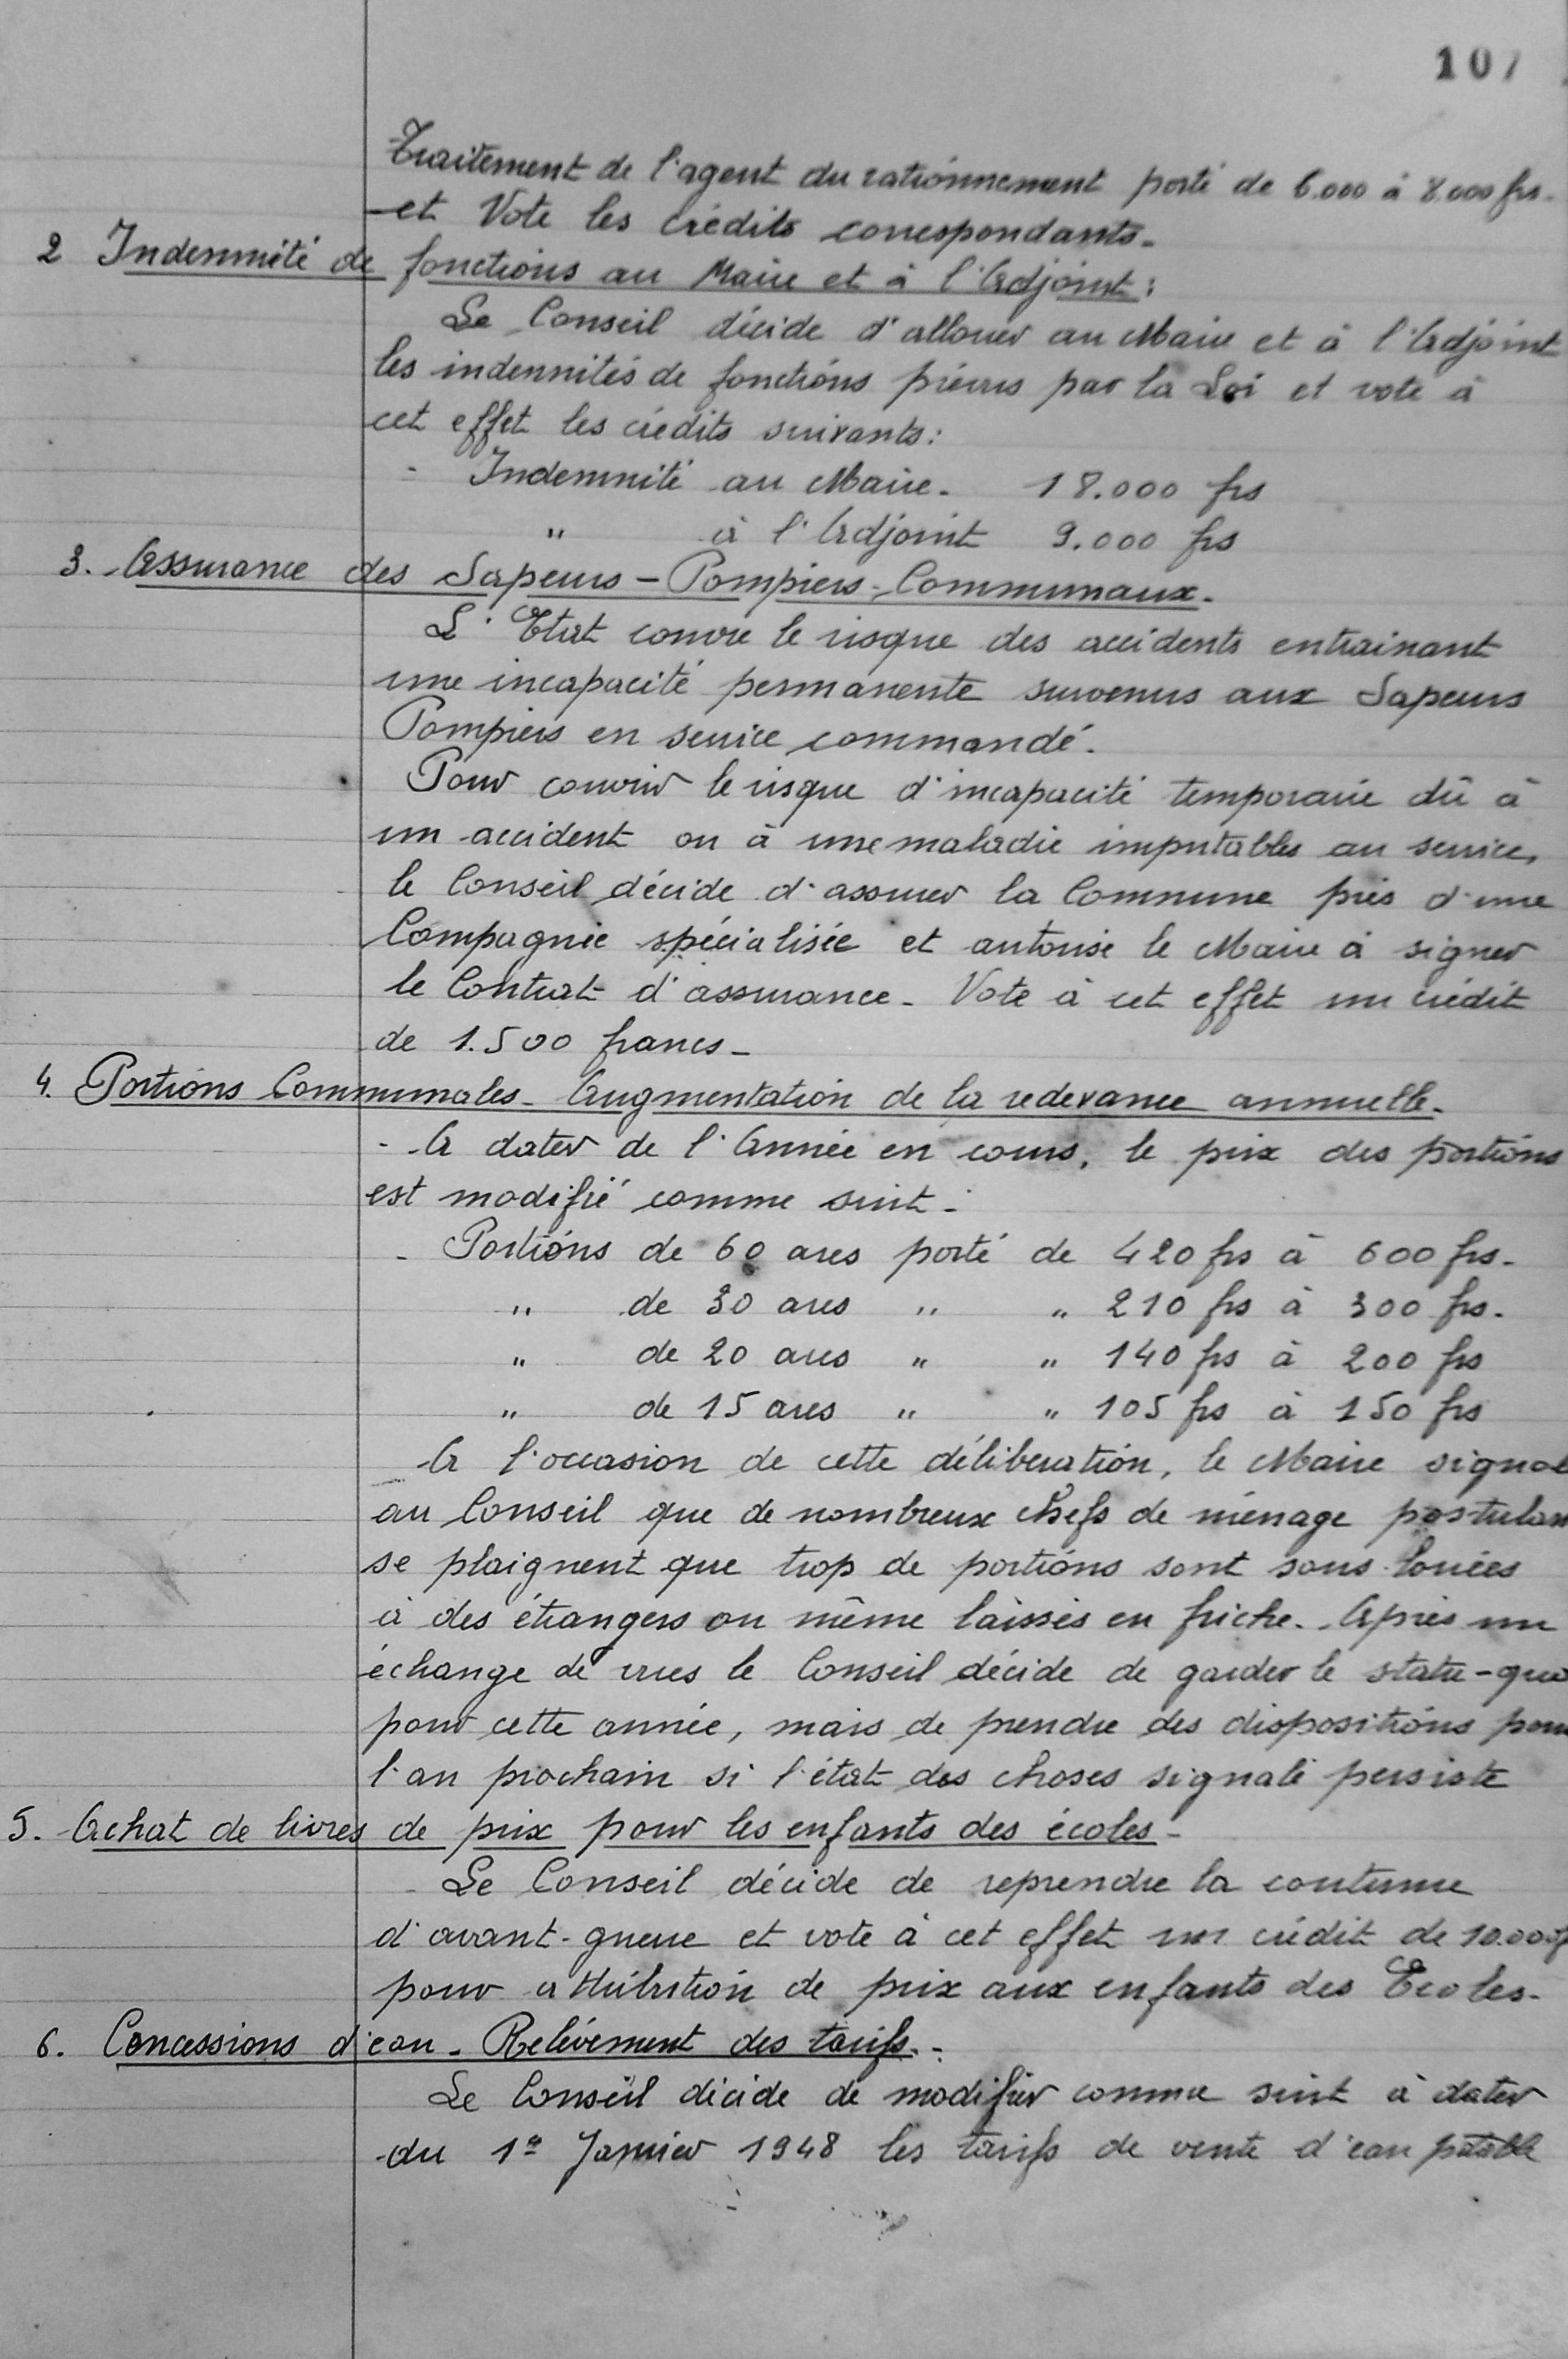 107
Traitement de l'agent du rationnement porté de 6.000 à 8.000 frs.
et Vote les crédits correspondants.
2 Indemnité de fonctions au Maire et à l'Adjoint :
Le Conseil décide d'allouer au Maire et à l'Adjoint
les indemnités de fonctions prévues par la Loi et vote à
cet effet les crédits suivants :
- Indemnité au Maire. 18.000 frs
" à l'Adjoint 9.000 frs
3. Assurance des Sapeurs-Pompiers-Communaux.
L'Etat couvre le risque des accidents entrainant
une incapacité permanente survenus aux Sapeurs
Pompiers en service commandé.
Pour couvrir le risque d'incapacité temporaire dû à
un accident ou à une maladie imputables au service,
le Conseil décide d'assurer la Commune près d'une
Compagnie spécialisée et autorise le Maire à signer
le Contrat d'assurance. Vote à cet effet un crédit
de 1.500 francs.
4. Portions Communales. Augmentation de la redevance annuelle.
- A dater de l'Année en cours, le prix des portions
est modifié comme suit :
- Portions de 60 ares porté de 420 frs à 600 frs.
" de 30 ares " " 210 frs à 300 frs.
" de 20 ares " " 140 frs à 200 frs
" de 15 ares " " 105 frs à 150 frs
A l'occasion de cette délibération, le Maire signale
au Conseil que de nombreux chefs de ménage postulan
se plaignent que trop de portions sont sous-louées
à des étrangers ou même laissés en friche. Après un
échange de vues le Conseil décide de garder le statu-quo
pour cette année, mais de prendre des dispositions pour
l'an prochain si l'état des choses signalé persiste
5. Achat de livres de prix pour les enfants des écoles.
Le Conseil décide de reprendre la coutume
d'avant-guerre et vote à cet effet un crédit de 10.000 f
pour attribution de prix aux enfants des Ecoles.
6. Concessions d'eau. Relèvement des tarifs.
Le Conseil décide de modifier comme suit à dater
du 1er Janvier 1948 les tarifs de vente d'eau potable